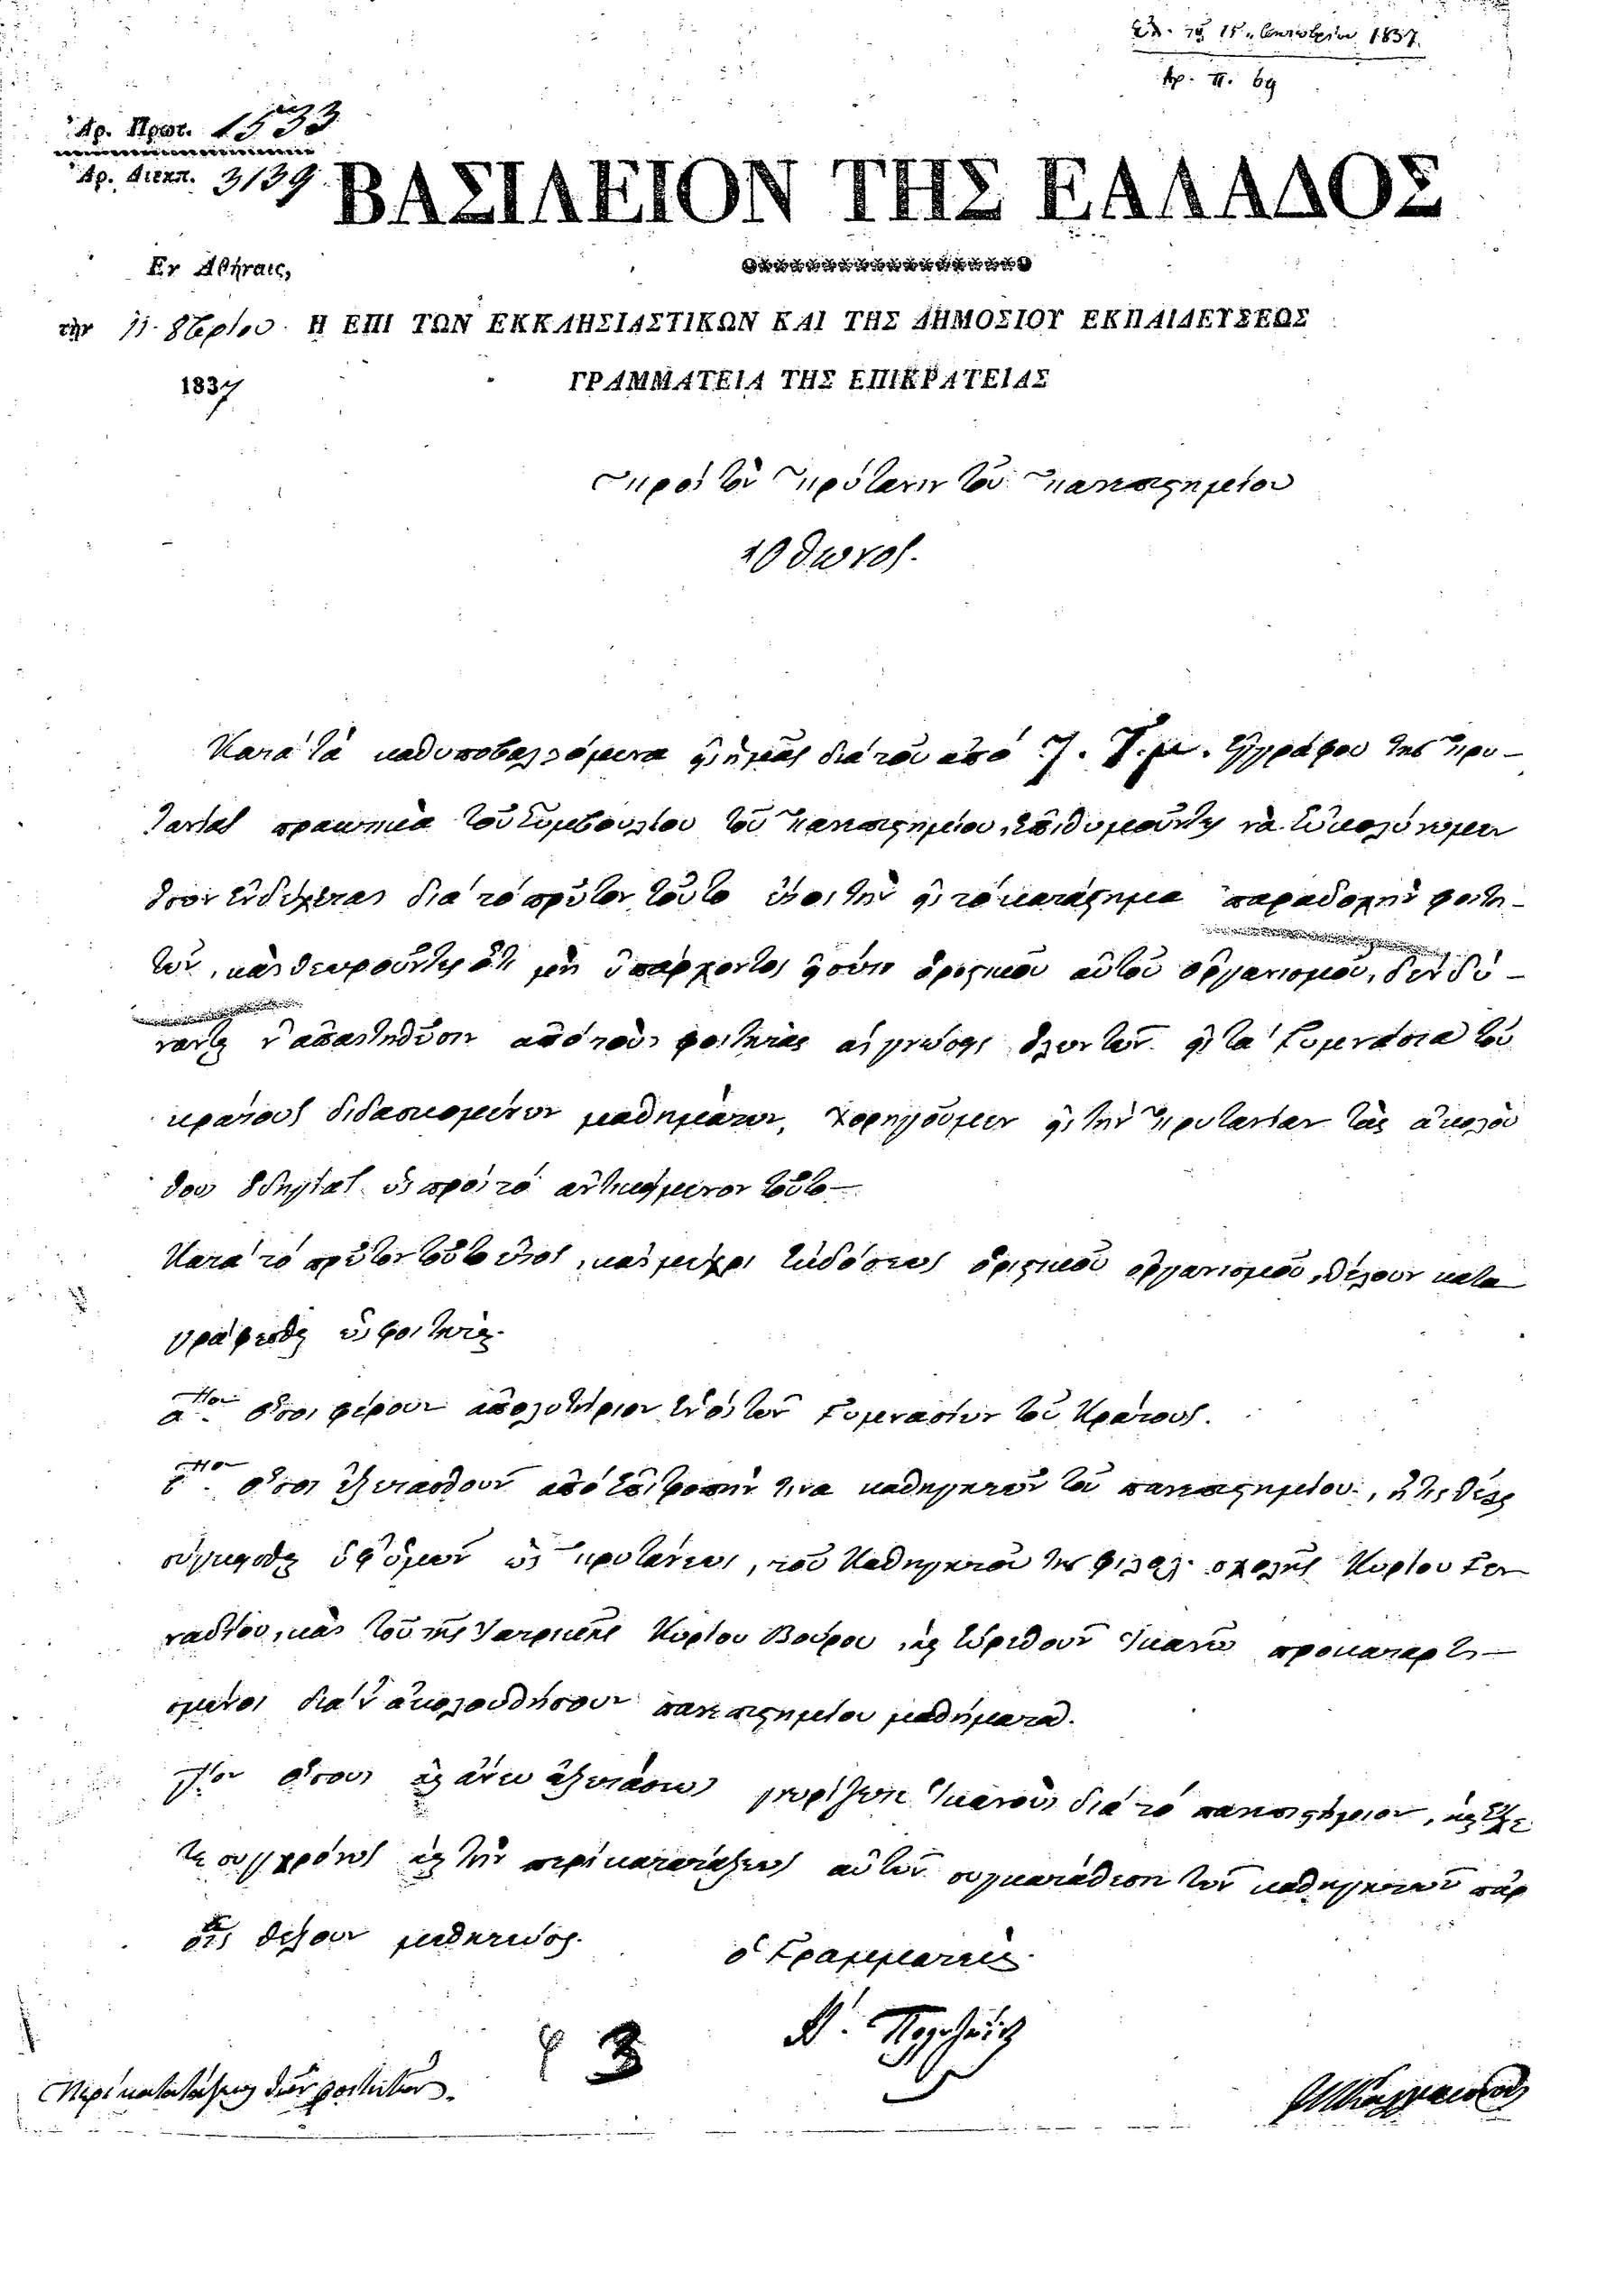 Ἐλ. τῇ 15 Ὀκτωβρίου 1837.
Αρ. Π. 69
Ἀρ. Πρωτ. 1533
Ἀρ. Διεκπ. 3139
ΒΑΣΙΛΕΙΟΝ ΤΗΣ ΕΛΛΑΔΟΣ
Εν Ἀθήναις,
τὴν 11. 8βρίου. Η ΕΠΙ ΤΩΝ ΕΚΚΛΗΣΙΑΣΤΙΚΩΝ ΚΑΙ ΤΗΣ ΔΗΜΟΣΙΟΥ ΕΚΠΑΙΔΕΥΣΕΩΣ
1837 ΓΡΑΜΜΑΤΕΙΑ ΤΗΣ ΕΠΙΚΡΑΤΕΙΑΣ
Πρὸς τὸν Πρύτανιν τοῦ Πανεπιστημείου
Ὄθωνος.
Κατὰ τὰ καθυποβαλλόμενα εἰς ἡμᾶς διὰ τοῦ ἀπὸ 7. τ. μ. ἐγγράφου της Πρυ-
τανείας πρακτικὰ τοῦ Συμβουλίου τοῦ Πανεπιστημείου, ἐπιθυμοῦντες νὰ εὐκολύνωμεν
ὅσον ἐνδέχεται διὰ τὸ πρῶτον τοῦτο ἔτος τὴν εἰς τὸ κατάστημα παραδοχὴν φοιτη-
τῶν, καὶ θεωροῦντες ὅτι μὴ ὑπάρχοντος εἰσέτι ὁριστικοῦ αὐτοῦ ὀργανισμοῦ, δὲν δύ-
νανται ν' ἀπαιτηθῶσιν ἀπὸ τοὺς φοιτητὰς αἱ γνώσεις ὅλων τῶν εἰς τὰ Γυμνάσια τοῦ
κράτους διδασκομένων μαθημάτων, χορηγοῦμεν εἰς τὴν Πρυτανείαν τὰς ἀκολού
θους ὁδηγίας ὡς πρὸς τὸ ἀντικείμενον τοῦτο—
Κατὰ τὸ πρῶτον τοῦτο ἔτος, καὶ μέχρι ἐκδόσεως ὁριστικοῦ ὀργανισμοῦ, θέλουν κατα
γράφεσθαι ὡς φοιτηταί.
α.<sup>ον</sup> ὅσοι φέρουν ἀπολυτήριον ἑνὸς τῶν Γυμνασίων τοῦ Κράτους.
β.<sup>ον</sup> ὅσοι ἐξετασθοῦν ἀπὸ ἐπιτροπήν τινα καθηγητῶν τοῦ πανεπιστημείου, ἥτις θέλει
σύγκεισθαι ὑφ' ὑμῶν ὡς Πρυτάνεως, τοῦ Καθηγητοῦ της φιλολ. σχολῆς Κυρίου Γεν
ναδίου, καὶ τοῦ τῆς Ἰατρικῆς Κυρίου Βούρου, καὶ εὑρεθοῦν ἱκανῶς προκαταρτι—
σμένοι διὰ ν' ἀκολουθήσουν πανεπιστημείου μαθήματα.
γ.<sup>ον</sup> ὅσους καὶ ἄνευ ἐξετάσεως γνωρίζετε ἱκανοὺς διὰ τὸ πανεπιστήμιον, καὶ ἔχε
τε συγχρόνως καὶ τὴν περὶ κατατάξεως αὐτῶν συγκατάθεσιν τῶν καθηγητῶν παρ'
οἷς θέλουν μαθητεύσει.
ὁ Γραμματεὺς.
Α. Πολυζωίδης
Περὶ κατατάξεως τῶν φοιτητῶν.